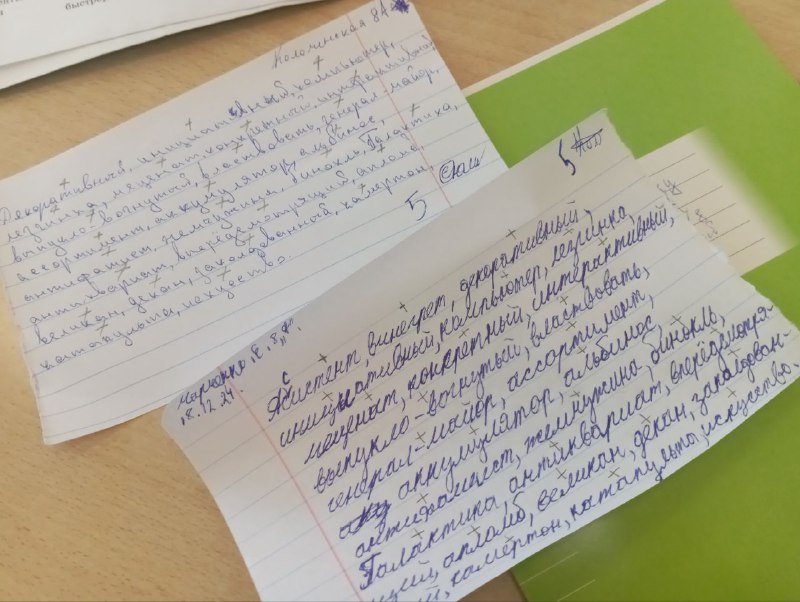 быстрое
Колочинская 8А
Декоративный, инициативный, компьютер,
лезгинка, меценат, конкретный, интерактивный,
выпукло-вогнутый, властвовать, генерал-майор,
ассортимент, аккумулятор, альбинос,
антифашист, жемчужина, бинокль, Галактика,
антиквариат, впередсмотрящий, апломб,
великан, декан, заколдованный, камертон,
катапульта, искусство.
5
5
Марченко Е. 8"А".
18.12.24.
винегрет, декоративный,
инициативный, компьютер, лезгинка
меценат, конкретный, интерактивный,
выпукло-вогнутый, властвовать,
генерал-майор, ассортимент,
аккумулятор, альбинос,
антифашист, жемчужина, бинокль,
Галактика, антиквариат, впередсмотря-
щий, апломб, великан, декан, заколдован-
ый, камертон, катапульты, искусство.